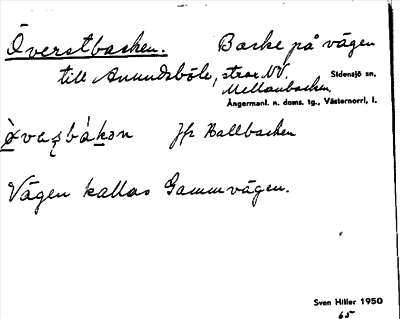 Överstbacken. Backe på vägen
till Anundsböle, strax NV.
Sidensjö sn,
Mellanbacken.
Ångermanl. n. doms. tg., Västernorrl, l.
Jfr Hallbacken
Vägen kallas Gammvägen.
Sven Hiller 1950
65